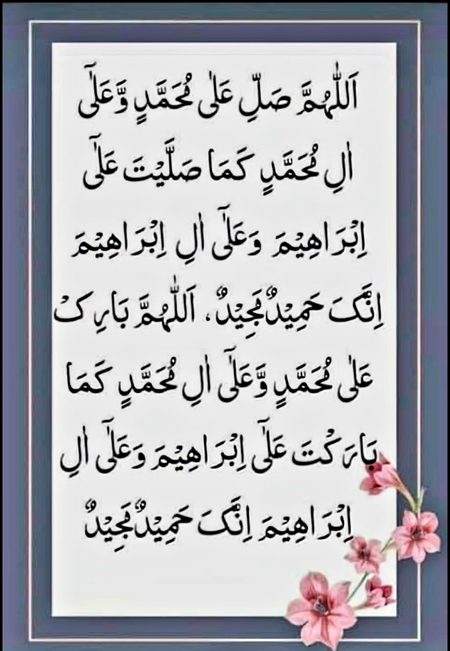 اَللّٰهُمَّ صَلِّ عَلٰى مُحَمَّدٍ وَّعَلٰٓى
اٰلِ مُحَمَّدٍ كَمَا صَلَّيْتَ عَلٰٓى
اِبْرَاهِيْمَ وَعَلٰٓى اٰلِ اِبْرَاهِيْمَ
اِنَّكَ حَمِيْدٌ مَّجِيْدٌ، اَللّٰهُمَّ بَارِكْ
عَلٰى مُحَمَّدٍ وَّعَلٰٓى اٰلِ مُحَمَّدٍ كَمَا
بَارَكْتَ عَلٰٓى اِبْرَاهِيْمَ وَعَلٰٓى اٰلِ
اِبْرَاهِيْمَ اِنَّكَ حَمِيْدٌ مَّجِيْدٌ